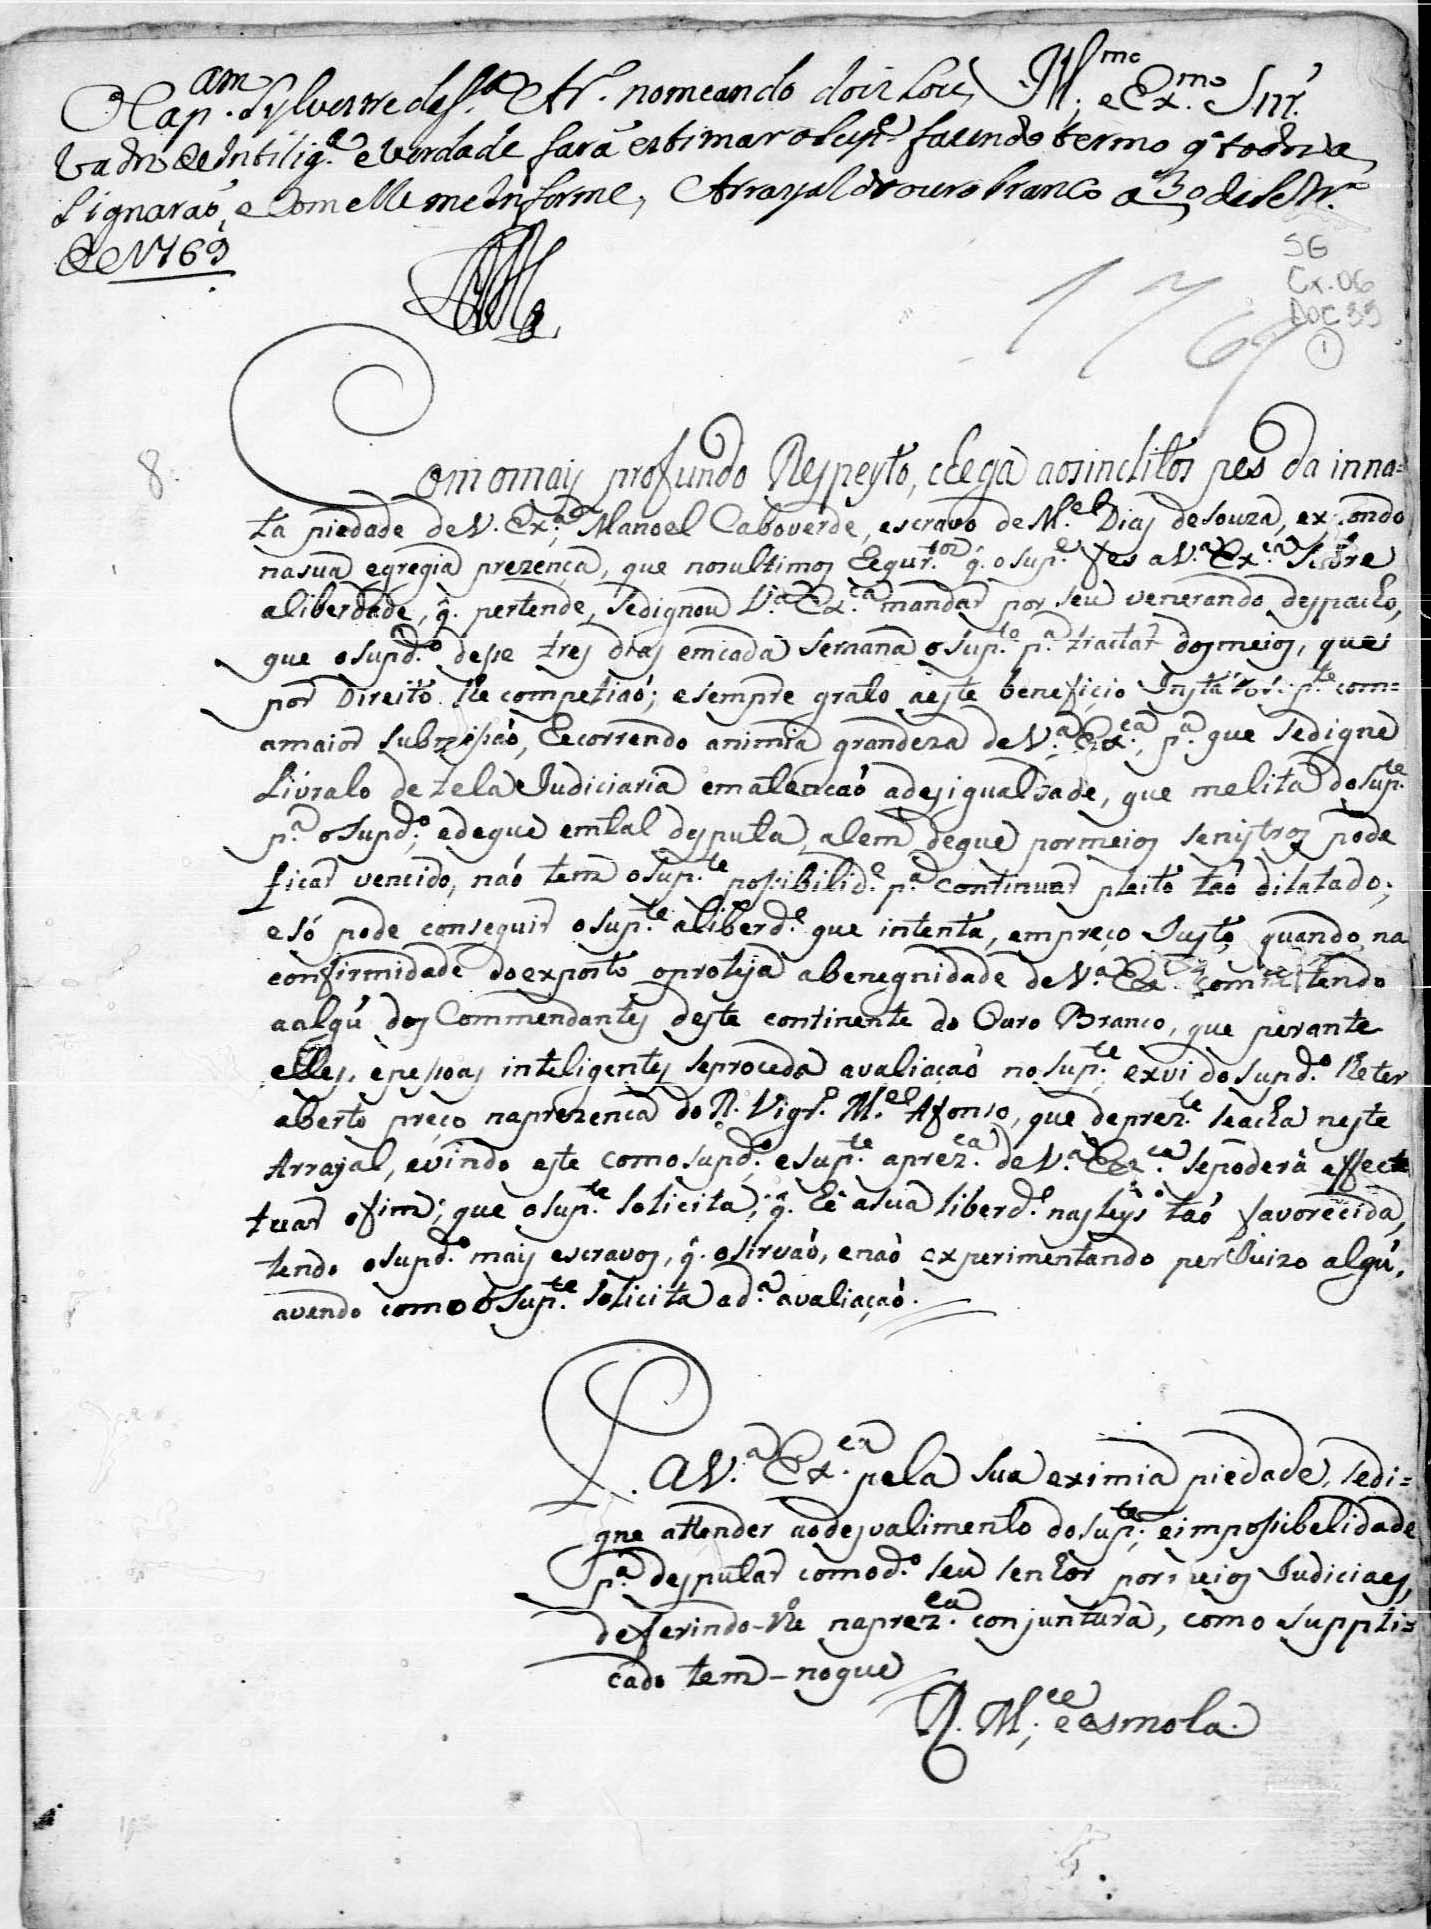 O Cap.am Sylvestre de S.ª Ar.º nomeando dois Lou Ill.mo e Ex.mo Snr.
vados de intilig.ª e verdade fará estimar o sup.e fazendo termo q todos a
signarão, e com elle me informe, Arrayal do ouro branco a 30 de
de 1769
SG
Cx. 06
DOC 33
1
1769
8
Com o mais profundo Respeyto, chega aos inclitos pés da inna=
ta piedade de V. Ex.ª, Manoel Caboverde, escravo de M.el Dias de Souza, expondo
na sua egregia prezença, que nos ultimos requr.tos q̃. o sup.e fes a V.ª Ex.ca sobre
a liberdade, q̃. pertende, se dignou V.ª Ex.ca mandar por seu venerando despacho,
que o supd.º desse tres dias em cada semana o sup.te p.ª tractar dos meios, que
por Direito lhe competiaó; e sempre grato a este beneficio Insta o sup.te com=
a maior submissaó, recorrendo a nimia grandeza de V.ª Ex.ca, p.ª que se digne
livralo de tela Judiciaria em atencaó a desigualdade, que melita do sup.te
p.ª o supd.º, e de que em tal desputa, alem de que por meios senistros pode
ficar vencido, naó tem o sup.te possibilid.e p.ª continuar pleito taó dilatado;
e só pode conseguir o sup.te a liberd.e que intenta, em preço Justo, quando na
confirmidade do exposto o proteja a benegnidade de V.ª Ex.ca cometendo
a algũ dos Commendantes deste continente do Ouro Branco, que perante
elles, e pessoas inteligentes se proceda avaliaçaó no sup.te ex vi do supd.º lhe ter
aberto preço na prezenca do R. Vigr.º M.el Afonso, que de prez.te se acha neste
Arrayal, e vindo este com o supd.º e sup.te a prez.ca de V.ª Ex.ca se poderá effect
tuar o fim, que o sup.te solicita, q̃. hé a sua liberd.e nas leys taó favorecida,
tendo o supd.º mais escravos, q̃. o sirvaó, e naó experimentando perJuizo algũ,
avendo como o sup.te solicita a d.ª avaliaçaó.
P. a V.ª Ex.ca pela sua eximia piedade, se di=
gne attender ao desvalimento do sup.te, e impossibelidade
p.ª desputar com o d.º seu senhor por meios Judiciaes,
deferindo-lhe na prez.ca conjuntura, como suppli=
cado tem - no que
R. M.ce e esmola.